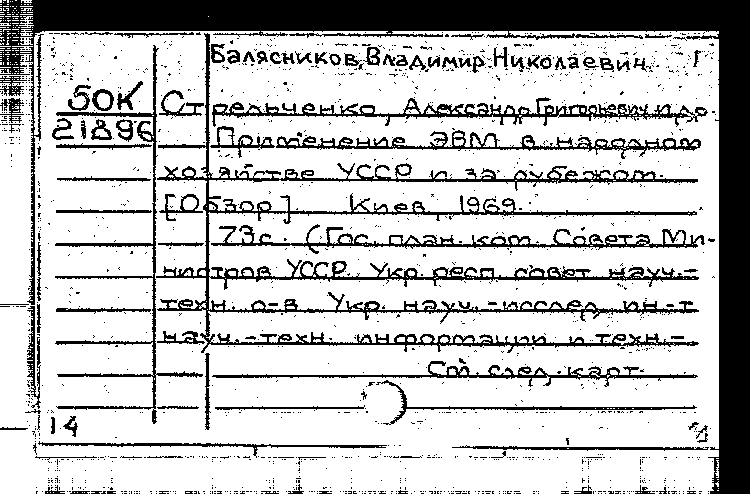 Балясников, Владимир Николаевич 1
50К
21896
Стрельченко, Александр Григорьевич и др.
Применение ЭВМ в народном
хозяйстве УССР и за рубежом.
[Обзор]. Киев, 1969.
73с. (Гос. план. ком. Совета Ми-
нистров УССР. Укр. респ. совет науч.-
техн. о-в. Укр. науч.-исслед. ин-т
науч.-техн. информации и техн.-
См. след. карт.
14